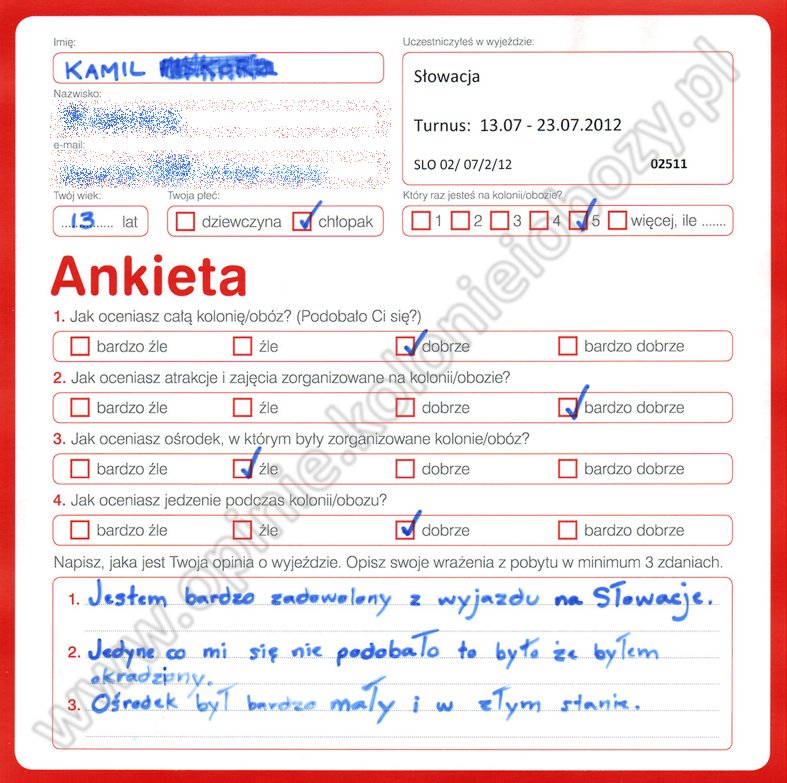 Imię:
KAMIL
Nazwisko:
e-mail:
Twój wiek:
13 lat
Twoja płeć:
dziewczyna chłopak
Uczestniczyłeś w wyjeździe:
Słowacja
Turnus: 13.07 - 23.07.2012
SLO 02/ 07/2/12 02511
Który raz jesteś na kolonii/obozie?
1 2 3 4 5 więcej, ile .......
Ankieta
1. Jak oceniasz całą kolonię/obóz? (Podobało Ci się?)
bardzo źle źle dobrze bardzo dobrze
2. Jak oceniasz atrakcje i zajęcia zorganizowane na kolonii/obozie?
bardzo źle źle dobrze bardzo dobrze
3. Jak oceniasz ośrodek, w którym były zorganizowane kolonie/obóz?
bardzo źle źle dobrze bardzo dobrze
4. Jak oceniasz jedzenie podczas kolonii/obozu?
bardzo źle źle dobrze bardzo dobrze
Napisz, jaka jest Twoja opinia o wyjeździe. Opisz swoje wrażenia z pobytu w minimum 3 zdaniach.
1. Jestem bardzo zadowolony z wyjazdu na Słowacje.
2. Jedyne co mi się nie podobało to było że byłem
okradziony.
3. Ośrodek był bardzo mały i w złym stanie.
www.opinie.kolonieiobozy.pl